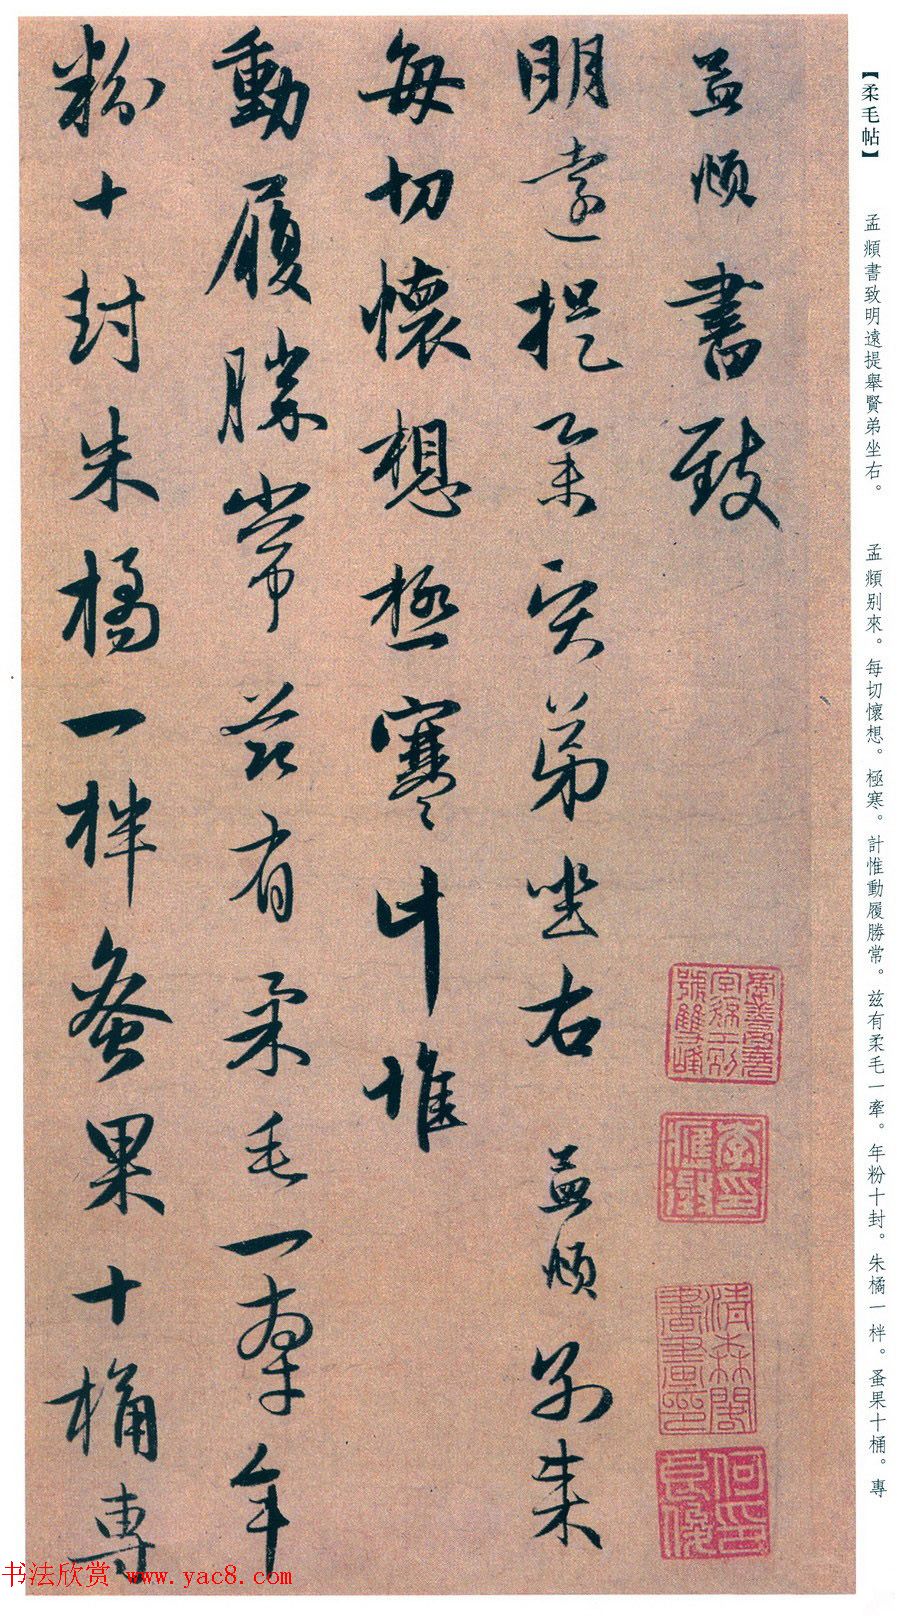 【柔毛帖】
孟頫書致明遠提舉賢弟坐右。
孟頫别來。每切懷想。極寒。計惟動履勝常。兹有柔毛一牽。年粉十封。朱橘一柈。蚤果十桶。專
孟頫書致
明遠提舉賢弟坐右 孟頫别來
每切懷想極寒計惟
動履勝常茲有柔毛一牽年
粉十封朱橘一柈蚤果十桶專
清森閣書畫印
书法欣赏 www.yac8.com